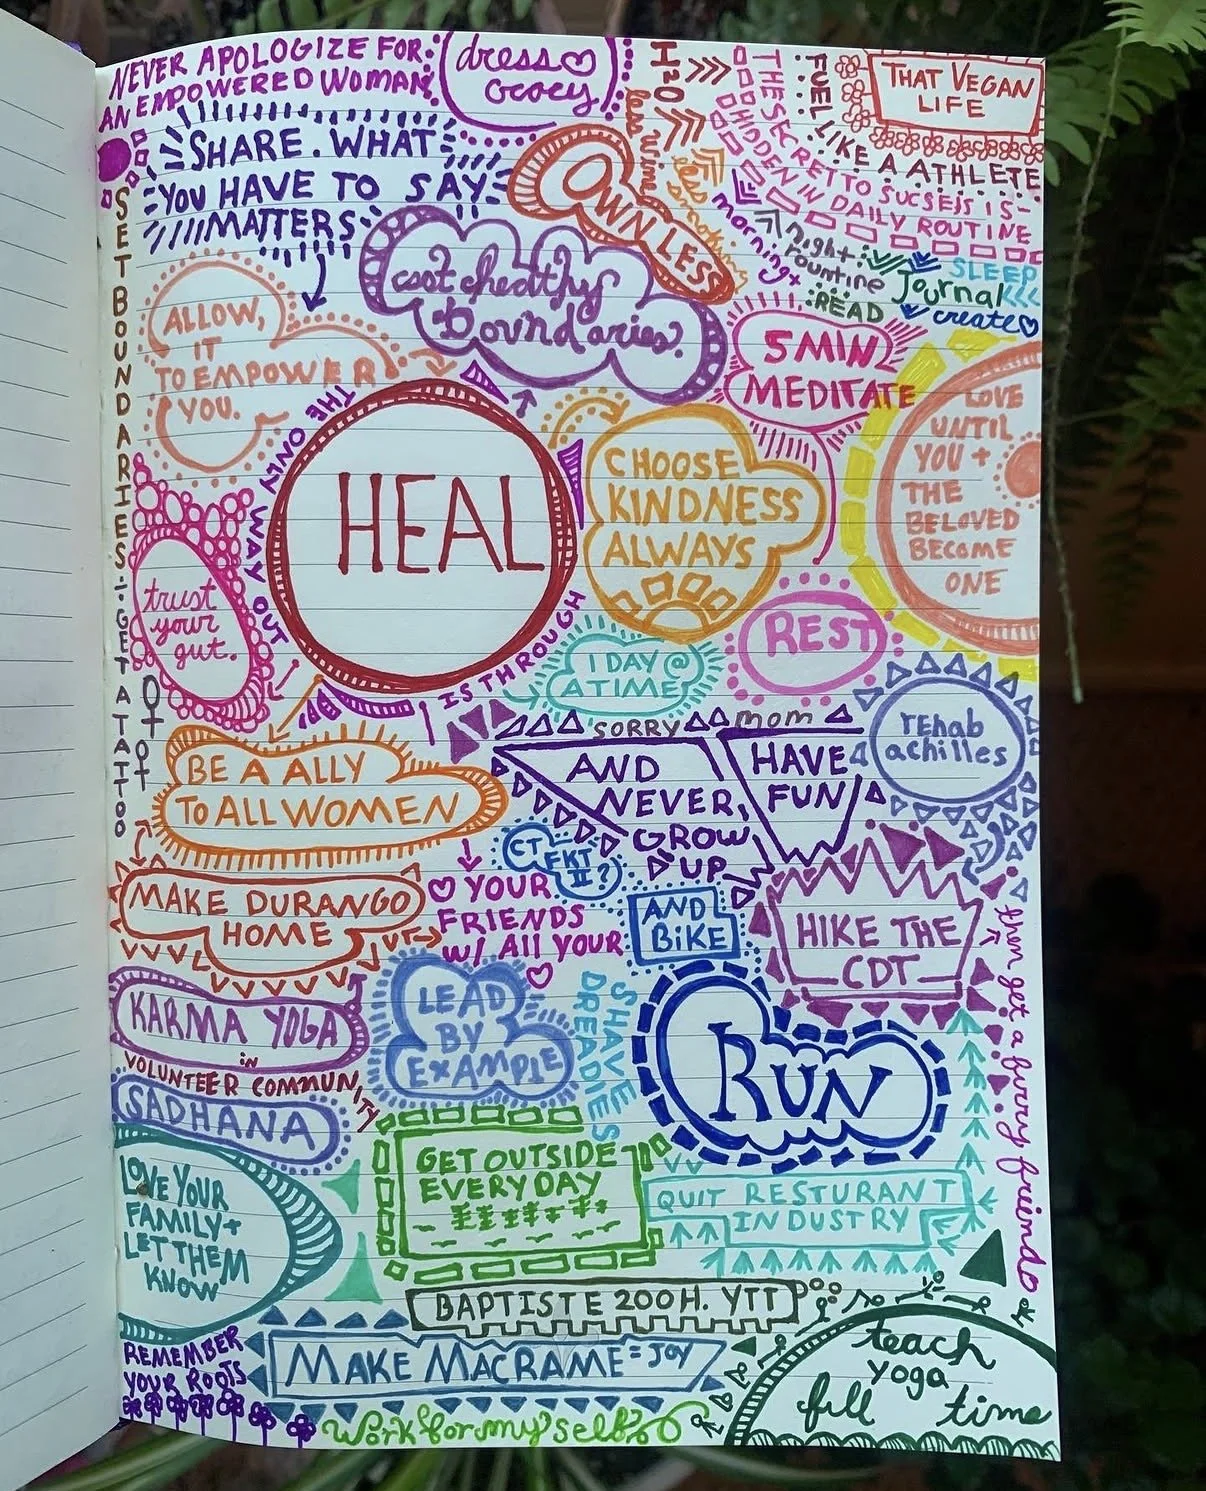 NEVER APOLOGIZE FOR
AN EMPOWERED WOMAN
dress
H2O
less wine
less smoking
THE SECRET TO SUCSESS IS-
HIDDEN IN DAILY ROUTINE
FUEL LIKE A ATHLETE
THAT VEGAN
LIFE
SHARE. WHAT
YOU HAVE TO SAY
MATTERS
OWN LESS
morning+
night
rountine
READ
Journal
SLEEP
create
SET BOUNDARIES
GET A TATTOO
cast healthy
Boundaries.
ALLOW,
IT
TO EMPOWER
YOU.
5 MIN
MEDITATE
LOVE
UNTIL
YOU +
THE
BELOVED
BECOME
ONE
THE ONLY WAY OUT
IS THROUGH
HEAL
CHOOSE
KINDNESS
ALWAYS
trust
your
gut.
1 DAY @
A TIME
REST
SORRY mom
rehab
achilles
BE A ALLY
TO ALL WOMEN
AND
NEVER,
GROW
UP
HAVE
FUN
CT
FKT
II?
MAKE DURANGO
HOME
♡ YOUR
FRIENDS
w/ All YOUR
♡
AND
BiKE
HIKE THE
CDT
then get a furry friend
KARMA YOGA
in
VOLUNTEER COMMUNITY
LEAD
BY
EXAMPLE
SHAVE
DREADIES
RUN
SADHANA
LOVE YOUR
FAMILY+
LET THEM
KNOW
GET OUTSIDE
EVERYDAY
QUIT RESTURANT
INDUSTRY
BAPTISTE 200H. YTT
REMEMBER
YOUR ROOTS
MAKE MACRAME = JOY
Work for my self
teach
yoga
full time